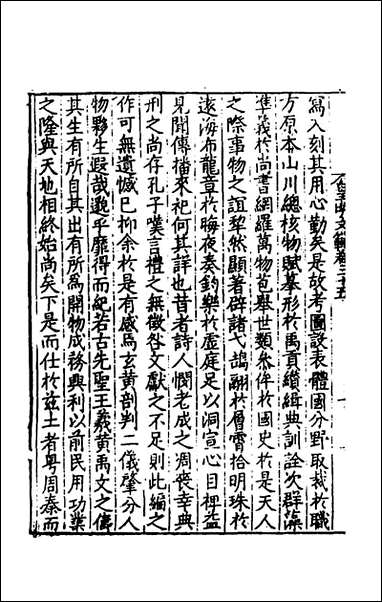 寫入刻其用心勤矣是故考圖設表體國分野取裁於職
方原本山川總核物賦摹形於禹貢纘緝典訓詮次群藻
準義於尚書網羅萬物包舉世類叅侔於國史於是天人
之際事物之誼犁然顯著辟諸弋鵠翮於層霄拾明珠於
遠海布龍章於晦夜奏鈞樂於虛庭足以洞宣心目裨益
見聞傳播來祀何其詳也昔者詩人憫老成之凋喪幸典
刑之尚存孔子嘆言禮之無徵咎文獻之不足則此編之
作可無遺憾已抑余於是有感焉玄黃剖判二儀肇分人
物夥生遐哉邈乎靡得而紀若古先聖王羲黃禹文之儔
其生有所自其出有所為開物成務興利以前民用功業
之隆與天地相終始尚矣下是而仕於茲土者粵周秦而
卷三十五